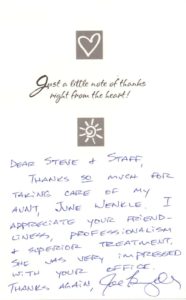 Just a little note of thanks
right from the heart!
DEAR STEVE & STAFF,
THANKS SO MUCH FOR
TAKING CARE OF MY
AUNT, JUNE WENKLE. I
APPRECIATE YOUR FRIEND-
LINESS, PROFESSIONALISM
& SUPERIOR TREATMENT.
SHE WAS VERY IMPRESSED
WITH YOUR OFFICE.
THANKS AGAIN,